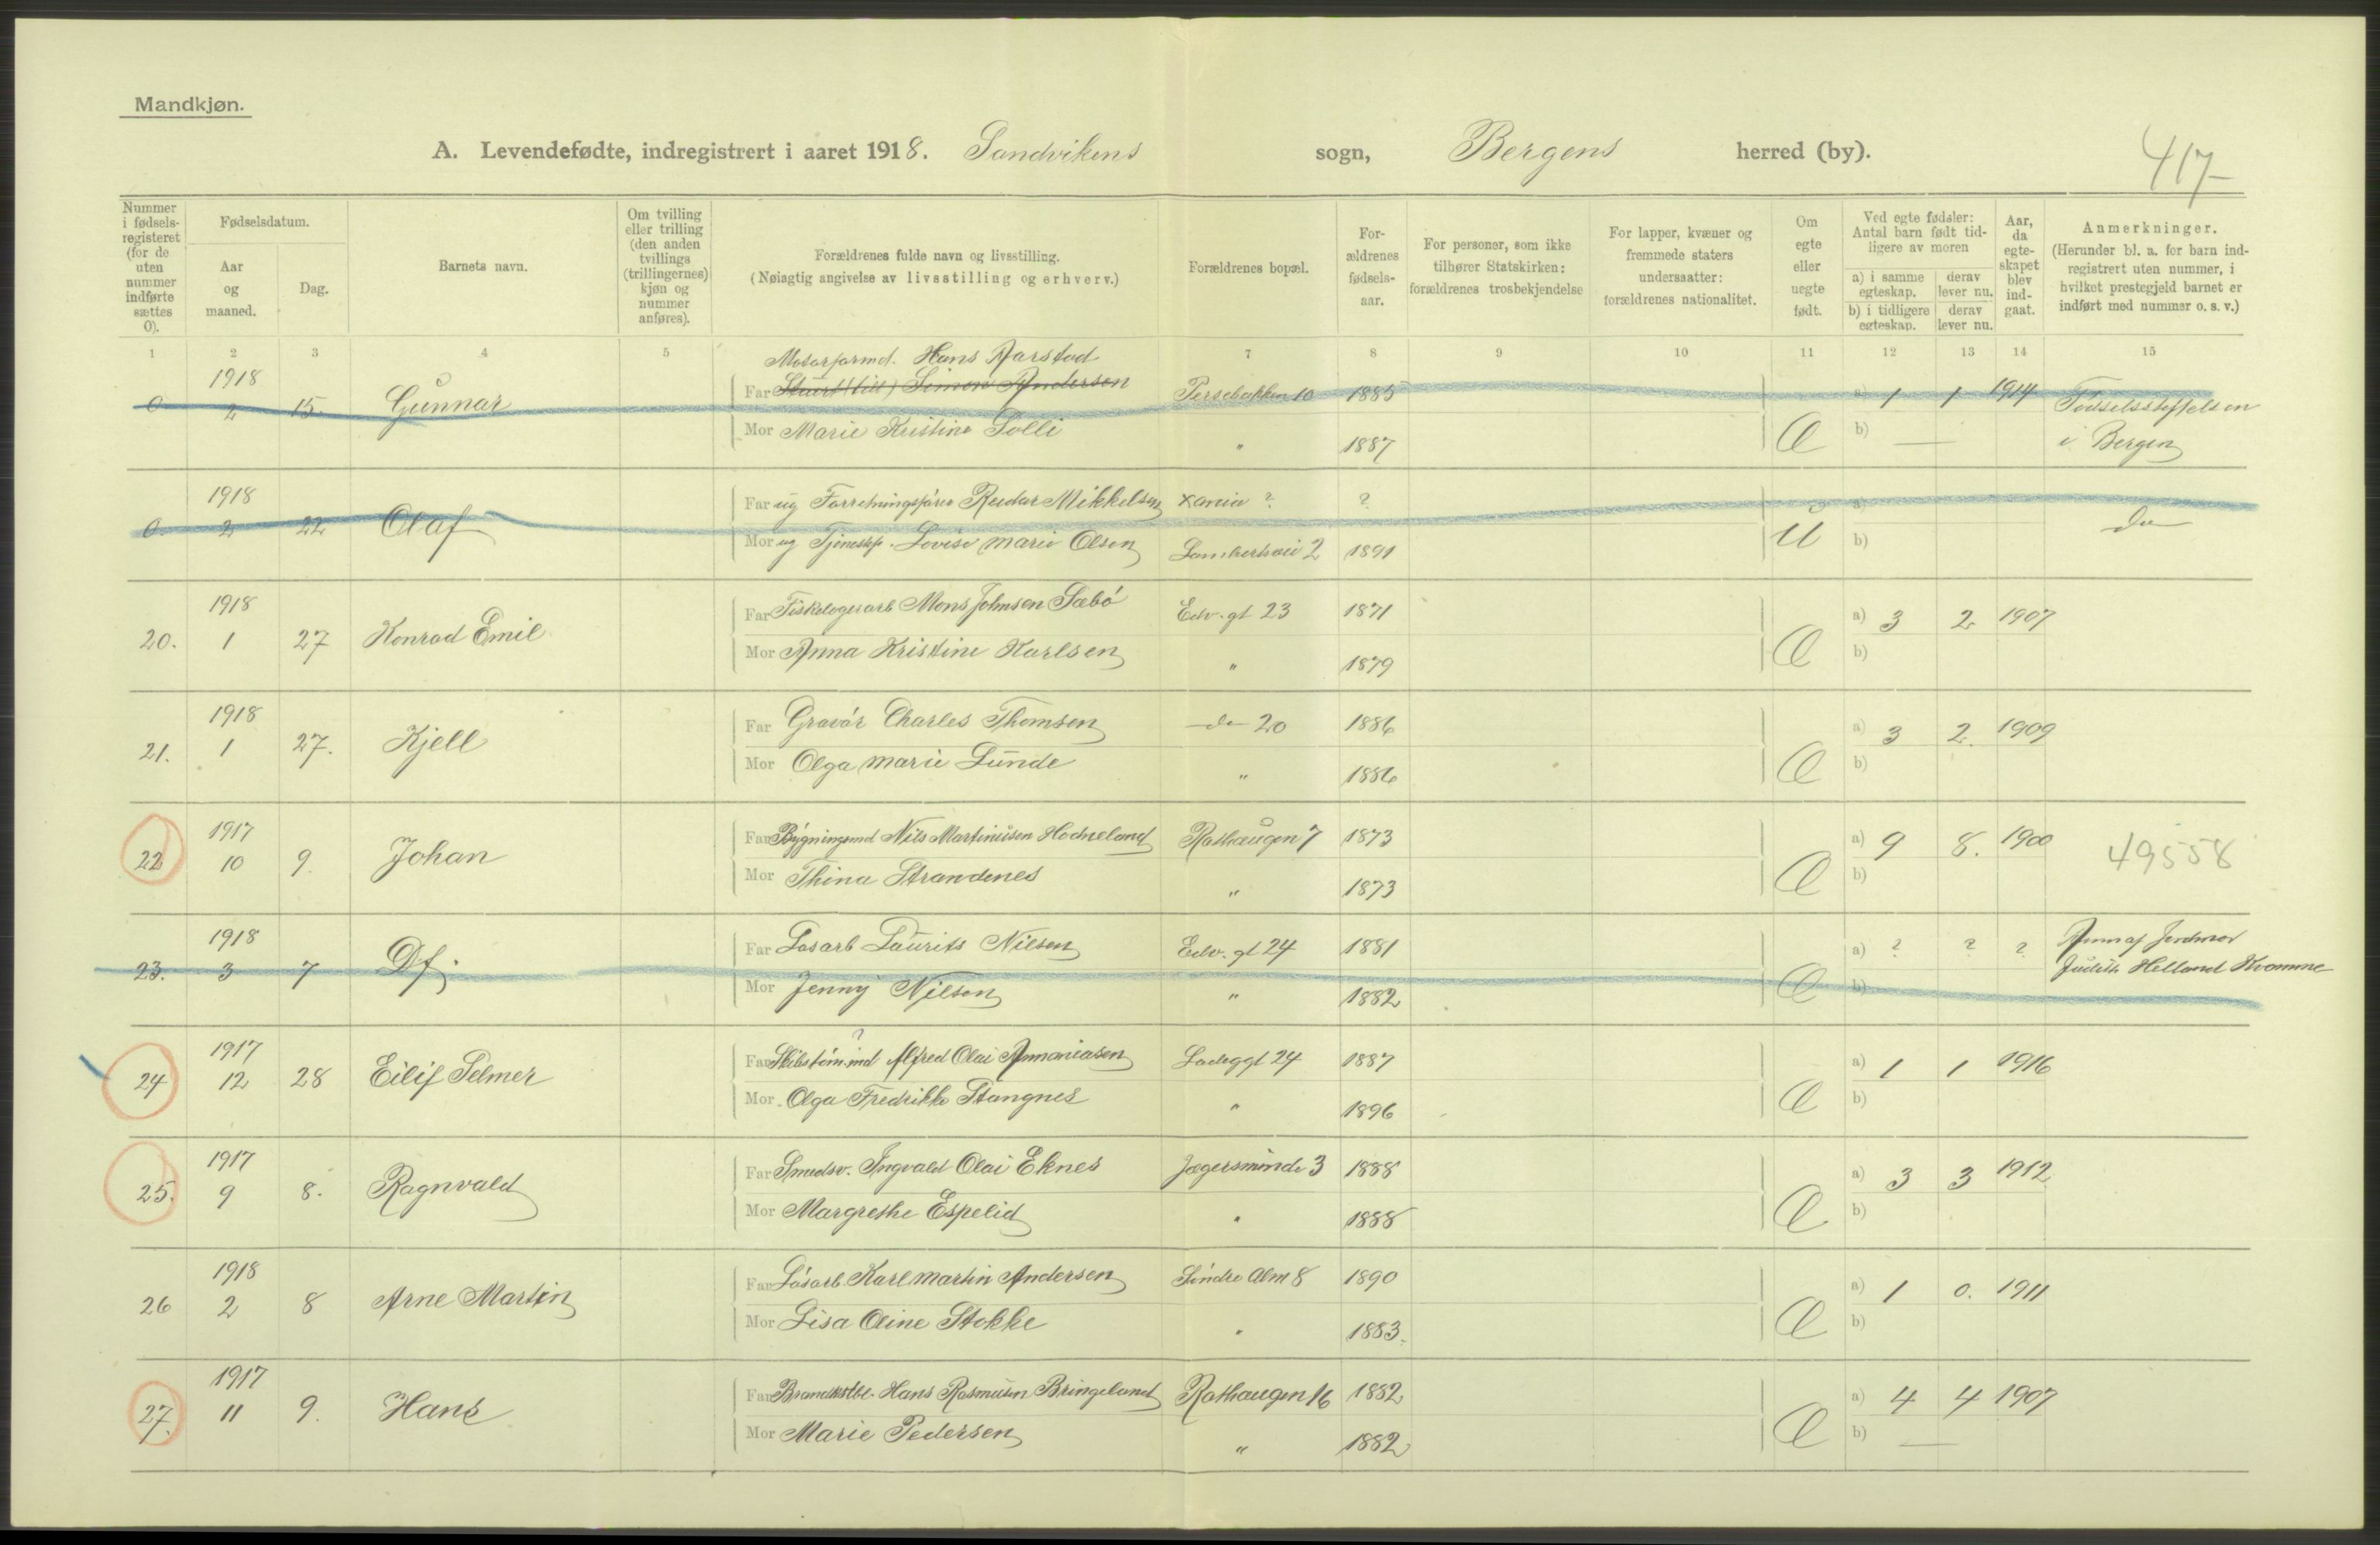 Mandkjøn.
A. Levendefødte, indregistrert i aaret 1918. Sandvikens sogn, Bergens herred (by). 417
Nummer i fødsels-registeret (for de uten nummer indførte sættes 0).
Fødselsdatum.
Aar og maaned.
Dag.
Barnets navn.
Om tvilling eller trilling (den anden tvillings (trillingernes) kjøn og nummer anføres).
Forældrenes fulde navn og livsstilling.
(Nøiagtig angivelse av livsstilling og erhverv.)
Forældrenes bopæl.
For-ældrenes fødsels-aar.
For personer, som ikke tilhører Statskirken: forældrenes trosbekjendelse
For lapper, kvæner og fremmede staters undersaatter: forældrenes nationalitet.
Om egte eller uegte født.
Ved egte fødsler: Antal barn født tid-ligere av moren
a) i samme egteskap. derav lever nu.
b) i tidligere egteskap. derav lever nu.
Aar, da egte-skapet blev ind-gaat.
Anmerkninger.
(Herunder bl. a. for barn ind-registrert uten nummer, i hvilket prestegjeld barnet er indført med nummer o. s. v.)
1 2 3 4 5 7 8 9 10 11 12 13 14 15
Motorformd. Hans Aarstad
1918
0 2 15. Gunnar Far Simon Andersen Persebakken 10 1885 a) 1 1 1914 Fødselsstiftelsen
Mor Marie Kristine Solli " 1887 E b) — i Bergen
1918
0. 2 22 Olaf Far ug Forretningsfører Reidar Mikkelsen Xania ? ? a)
Mor ug Tjenestep. Lovise Marie Olsen 2 1891 U b) do
1918
20. 1 27 Konrad Emil Far Mons Johnsen Sæbø Edv. gt 23 1871 a) 3 2 1907
Mor Anna Kristine Karlsen " 1879 E b)
1918
21. 1 27. Kjell Far Gravør Charles Thomsen do 20 1886 a) 3 2. 1909
Mor Olga Marie Lunde " 1886 E b)
1917
22 10 9. Johan Far Bygningsmd Nils Martiniusen Hodneland Rothaugen 7 1873 a) 9 8. 1900 49558
Mor Thina Strandenes " 1873 E b)
1918
23. 3 7 Df. Far Løsarb Laurits Nilsen Edv. gt 24 1881 a) ? ? ? Anm af Jordmor
Mor Jenny Nilsen " 1882 E b) Judith Helland Kvamme
1917
24 12 28 Eilif Selmer Far Skibstømmd ? Alfred Olai Annaniasen Ladeggt 24 1887 a) 1 1 1916
Mor Olga Fredrikke Stangnes " 1896 E b)
1917
25. 9 8. Ragnvald Far Smedsv. Ingvald Olai Eknes Jægersminde 3 1888 a) 3 3 1912
Mor Margrethe Espelid " 1888 E b)
1918
26 2 8 Arne Martin Far Løsarb. Karl Martin Andersen Søndre Alm 8 1890 a) 1 0. 1911
Mor Lisa Oline Stokke " 1883. E b)
1917
27. 11 9. Hans Far Hans Rasmusen Bringeland Rothaugen 16 1882 a) 4 4 1907
Mor Marie Pedersen " 1882 E b) —